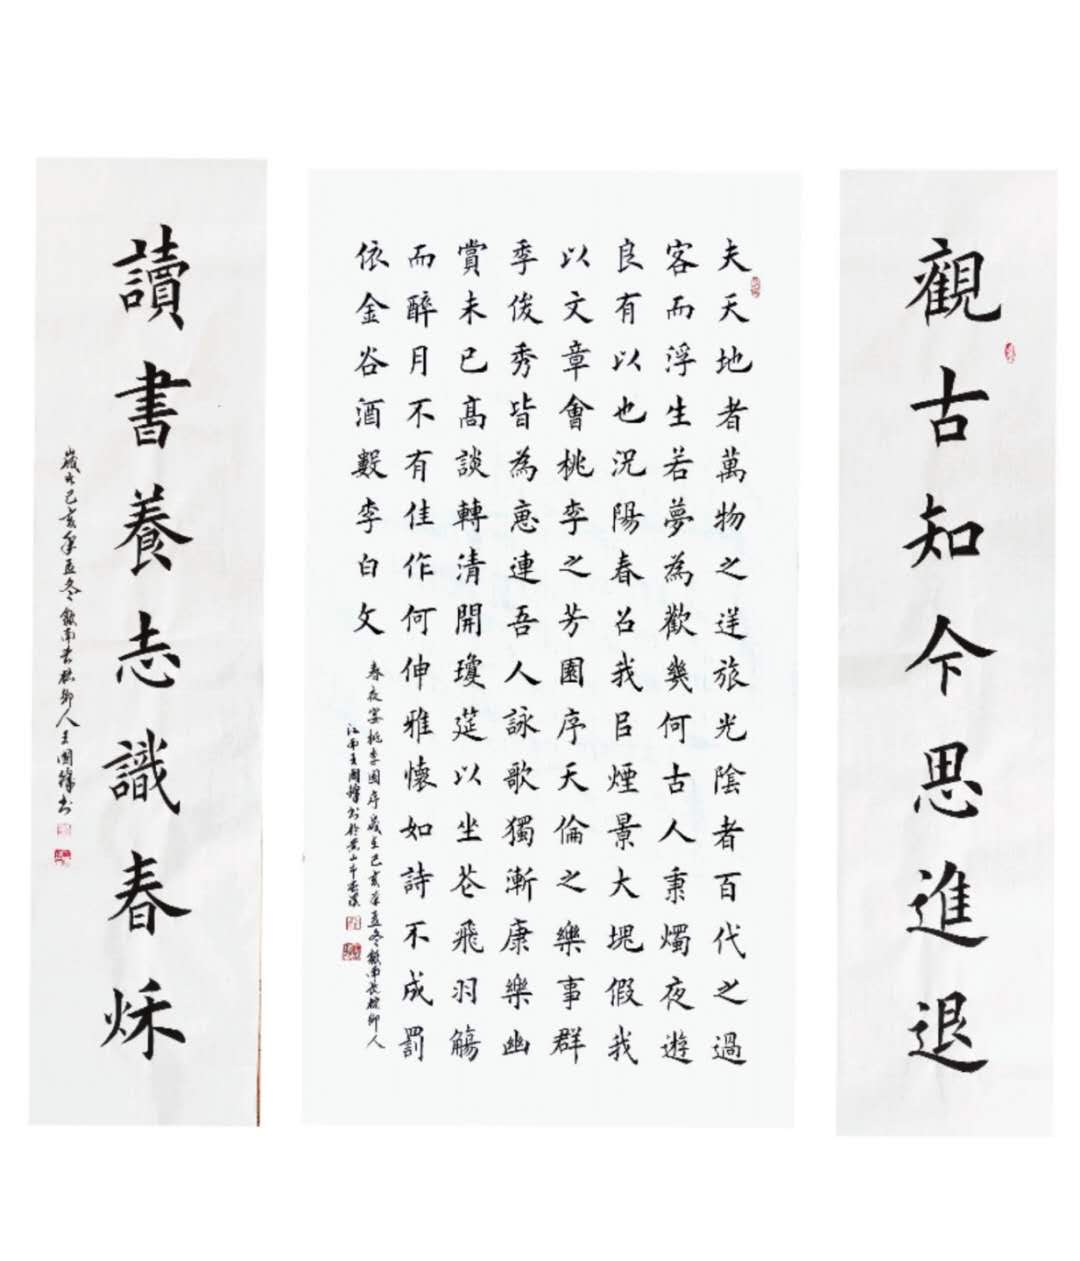 觀古知今思進退
夫天地者萬物之逆旅光陰者百代之過
客而浮生若夢為歡幾何古人秉燭夜遊
良有以也況陽春召我㠯煙景大塊假我
以文章會桃李之芳園序天倫之樂事群
季俊秀皆為惠連吾人詠歌獨漸康樂幽
賞未已高談轉清開瓊筵以坐花飛羽觴
而醉月不有佳作何伸雅懷如詩不成罰
依金谷酒數李白文
春夜宴桃李園序歲在己亥年孟冬歙南長鄉人
江南王國書於黃山市屯溪
讀書養志識春秌
歲在己亥年孟冬歙南鄉人王國書